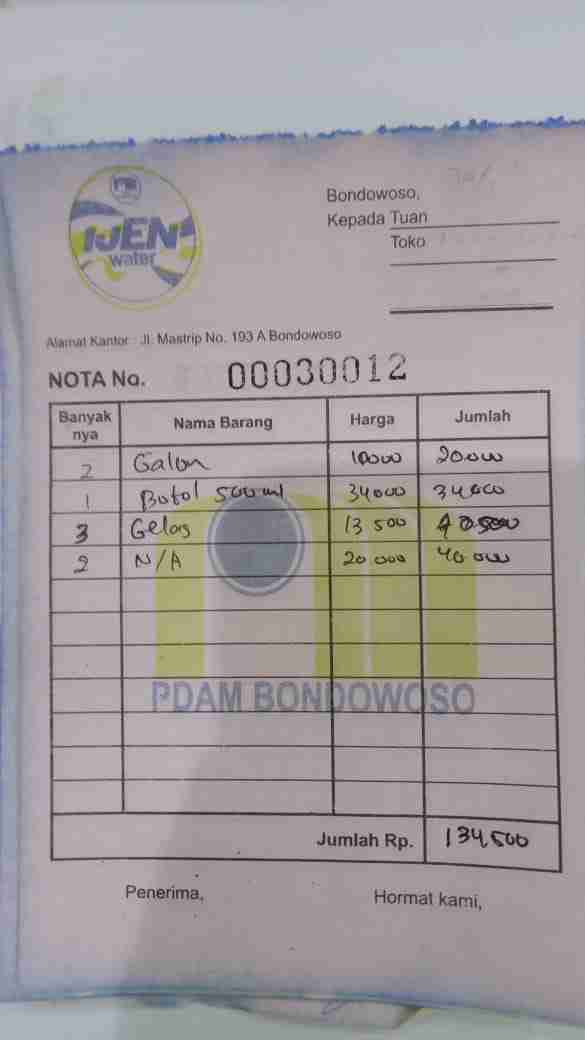 IJEN
water
Bondowoso,
Kepada Tuan
Toko
Alamat Kantor : Jl. Mastrip No. 193 A Bondowoso
NOTA No. 00030012
Banyak nya Nama Barang Harga Jumlah
2 Galon 10000 20.000
1 Botol 500 ml 34000 34,000
3 Gelas 13 500 40 500
2 N/A 20 000 40 000
PDAM BONDOWOSO
Jumlah Rp. 134,500
Penerima, Hormat kami,